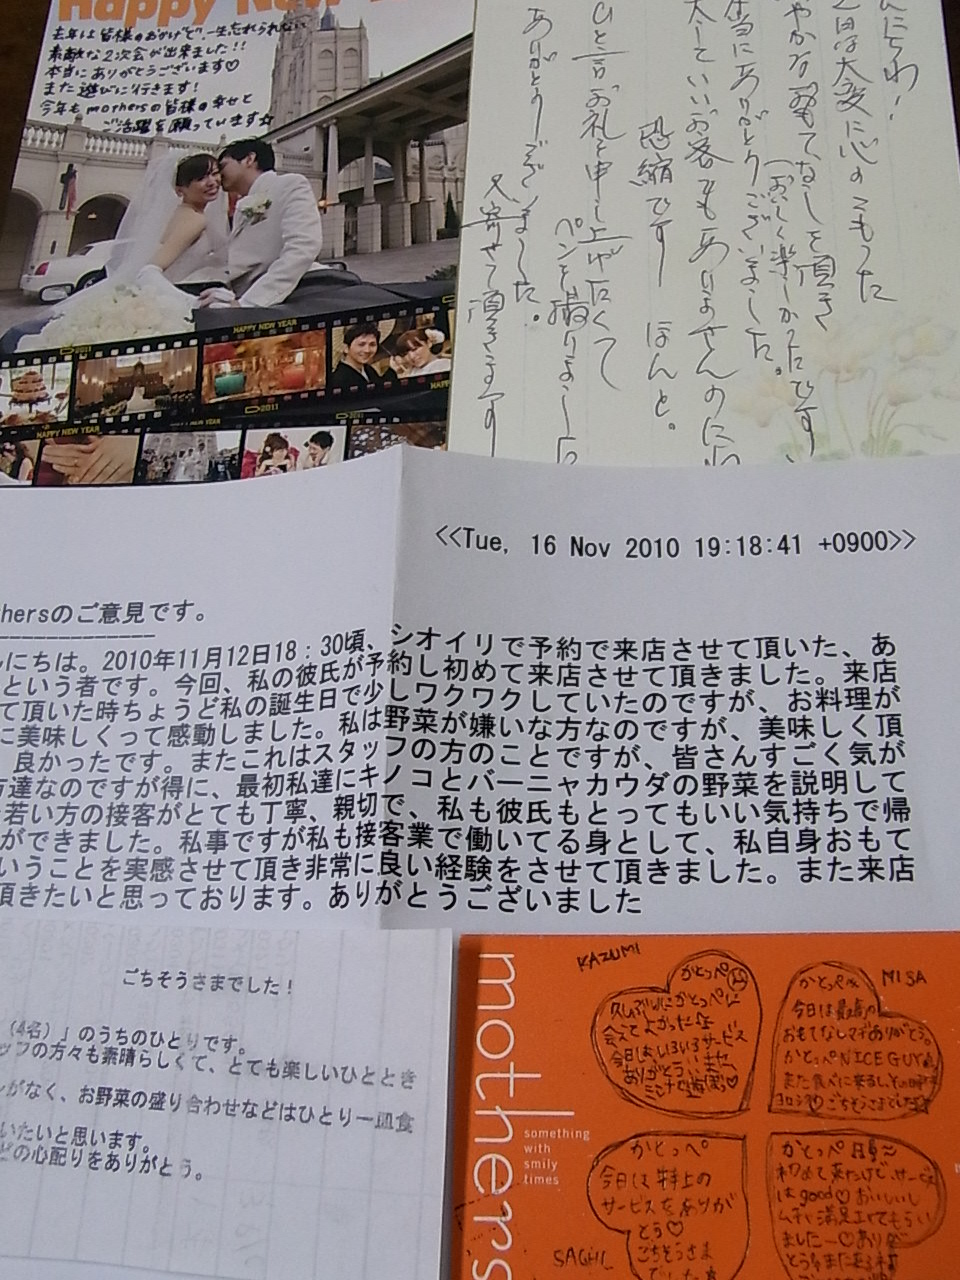 Happy New
去年は皆様のおかげで一生忘れられない
素敵な2次会が出来ました!!
本当にありがとうございます♡
また遊びに行きます!
今年もmothersの皆様の幸せと
ご活躍を願っています☆
HAPPY NEW YEAR
2011
HAPPY NEW YEAR
2011
2011
んにちわ!
日は大変に心のこもった
やかなおもてなしを頂き
(おいしく楽しかったです
本当にありがとうございました。
大していいお客でもありませんのに
恐縮です ほんと。
ひと言お礼を申し上げたくて
ペンを撮りました
ありがとうございました。
又寄せて頂きます
<<Tue, 16 Nov 2010 19:18:41 +0900>>
thersのご意見です。
---------------
んにちは。2010年11月12日18：30頃、シオイリで予約で来店させて頂いた、あ
という者です。今回、私の彼氏が予約し初めて来店させて頂きました。来店
て頂いた時ちょうど私の誕生日で少しワクワクしていたのですが、お料理が
に美味しくって感動しました。私は野菜が嫌いな方なのですが、美味しく頂
良かったです。またこれはスタッフの方のことですが、皆さんすごく気が
方達なのですが得に、最初私達にキノコとバーニャカウダの野菜を説明して
若い方の接客がとても丁寧、親切で、私も彼氏もとってもいい気持ちで帰
ができました。私事ですが私も接客業で働いてる身として、私自身おもて
いうことを実感させて頂き非常に良い経験をさせて頂きました。また来店
頂きたいと思っております。ありがとうございました
ごちそうさまでした！
（4名）」のうちのひとりです。
ッフの方々も素晴らしくて、とても楽しいひととき
がなく、お野菜の盛り合わせなどはひとり一皿食
いたいと思います。
どの心配りをありがとう。
mothers
something
with
smily
times
KAZUMI
かとっぺ
久しぶりにかとっぺに
会えてよかった
今日はいろいろサービス
ありがとうございます
MISA
かとっぺへ
今日は最高の
おもてなしマヂありがとう。
かとっぺNICE GUY
また食べに来るし、その時は
ヨロシク♡ごちそうさまでした
かとっぺ
今日は特上の
サービスをありが
とう♡
ごちそうさま
でした
SAGHI
かとっぺ
初めて来たけど、サービス
はgood♡おいしいし
ムチャ満足させてもらい
ました〜♡ありが
とう